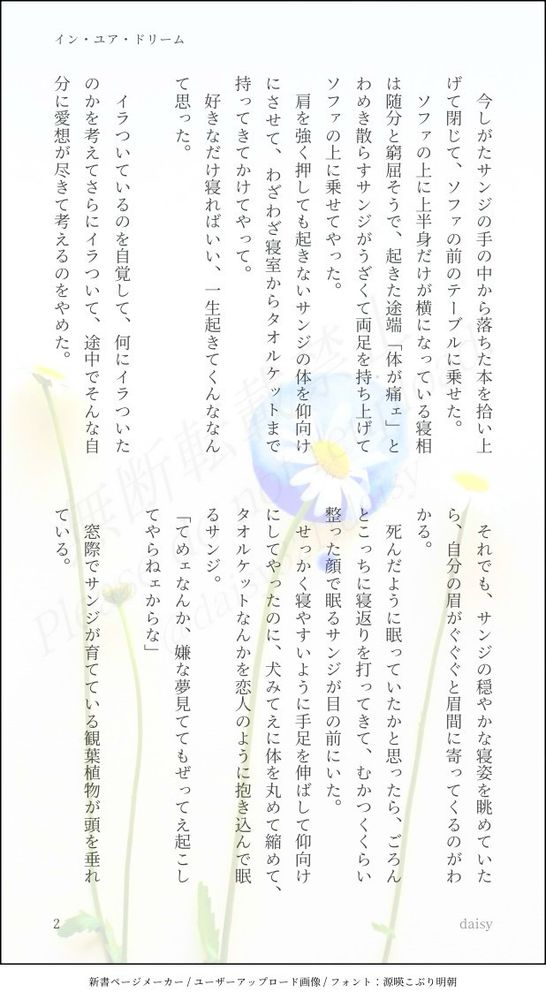 イン・ユア・ドリーム
今しがたサンジの手の中から落ちた本を拾い上
げて閉じて、ソファの前のテーブルに乗せた。
ソファの上に上半身だけが横になっている寝相
は随分と窮屈そうで、起きた途端「体が痛ェ」と
わめき散らすサンジがうざくて両足を持ち上げて
ソファの上に乗せてやった。
肩を強く押しても起きないサンジの体を仰向け
にさせて、わざわざ寝室からタオルケットまで
持ってきてかけてやって。
好きなだけ寝ればいい、一生起きてくんななん
て思った。
イラついているのを自覚して、何にイラついた
のかを考えてさらにイラついて、途中でそんな自
分に愛想が尽きて考えるのをやめた。
それでも、サンジの穏やかな寝姿を眺めていた
ら、自分の眉がぐぐぐと眉間に寄ってくるのがわ
かる。
死んだように眠っていたかと思ったら、ごろん
とこっちに寝返りを打ってきて、むかつくくらい
整った顔で眠るサンジが目の前にいた。
せっかく寝やすいように手足を伸ばして仰向け
にしてやったのに、犬みてえに体を丸めて縮めて、
タオルケットなんかを恋人のように抱き込んで眠
るサンジ。
「てめェなんか、嫌な夢見ててもぜってえ起こし
てやらねェからな」
窓際でサンジが育てている観葉植物が頭を垂れ
ている。
2
daisy
無断転載禁止
新書ページメーカー / ユーザーアップロード画像 / フォント：源暎こぶり明朝